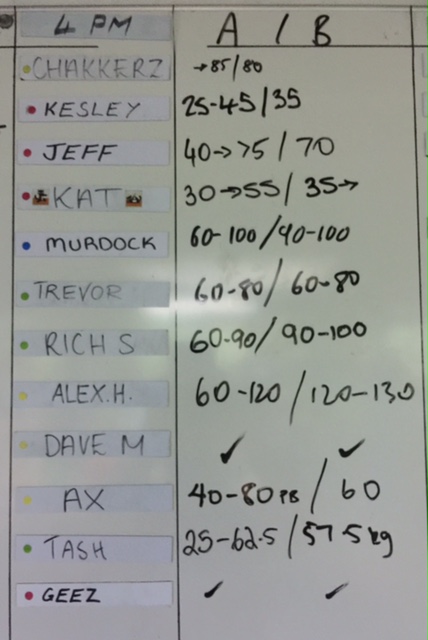 4 PM A / B
CHAKKERZ →85/80
KESLEY 25-45/35
JEFF 40->75 / 70
KAT 30→55 / 35→
MURDOCK 60-100/90-100
TREVOR 60-80/ 60-80
RICH S 60-90/ 90-100
ALEX.H. 60-120 / 120-130
DAVE M ✓ ✓
AX 40-80 PB / 60
TASH 25-62.5/57.5kg
GEEZ ✓ ✓